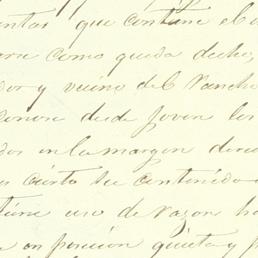 ntas que contiene el
como queda dicho,
dor y vecino del Rancho
conoce desde joven los
dos en la margen derec
es cierto su contenido
tiene uso de razon ha
en posecion quieta y p